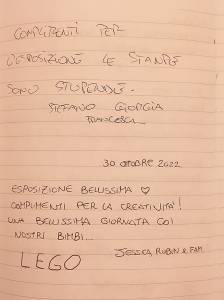 COMPLIMENTI PER
L'ESPOSIZIONE LE STAMPE
SONO STUPENDE.
STEFANO GIORGIA
FRANCESCA
30 OTTOBRE 2022
ESPOSIZIONE BELLISSIMA ♡
COMPLIMENTI PER LA CREATIVITA'!
UNA BELLISSIMA GIORNATA COI
NOSTRI BIMBI...
JESSICA, RUBIN & FAM.
LEGO